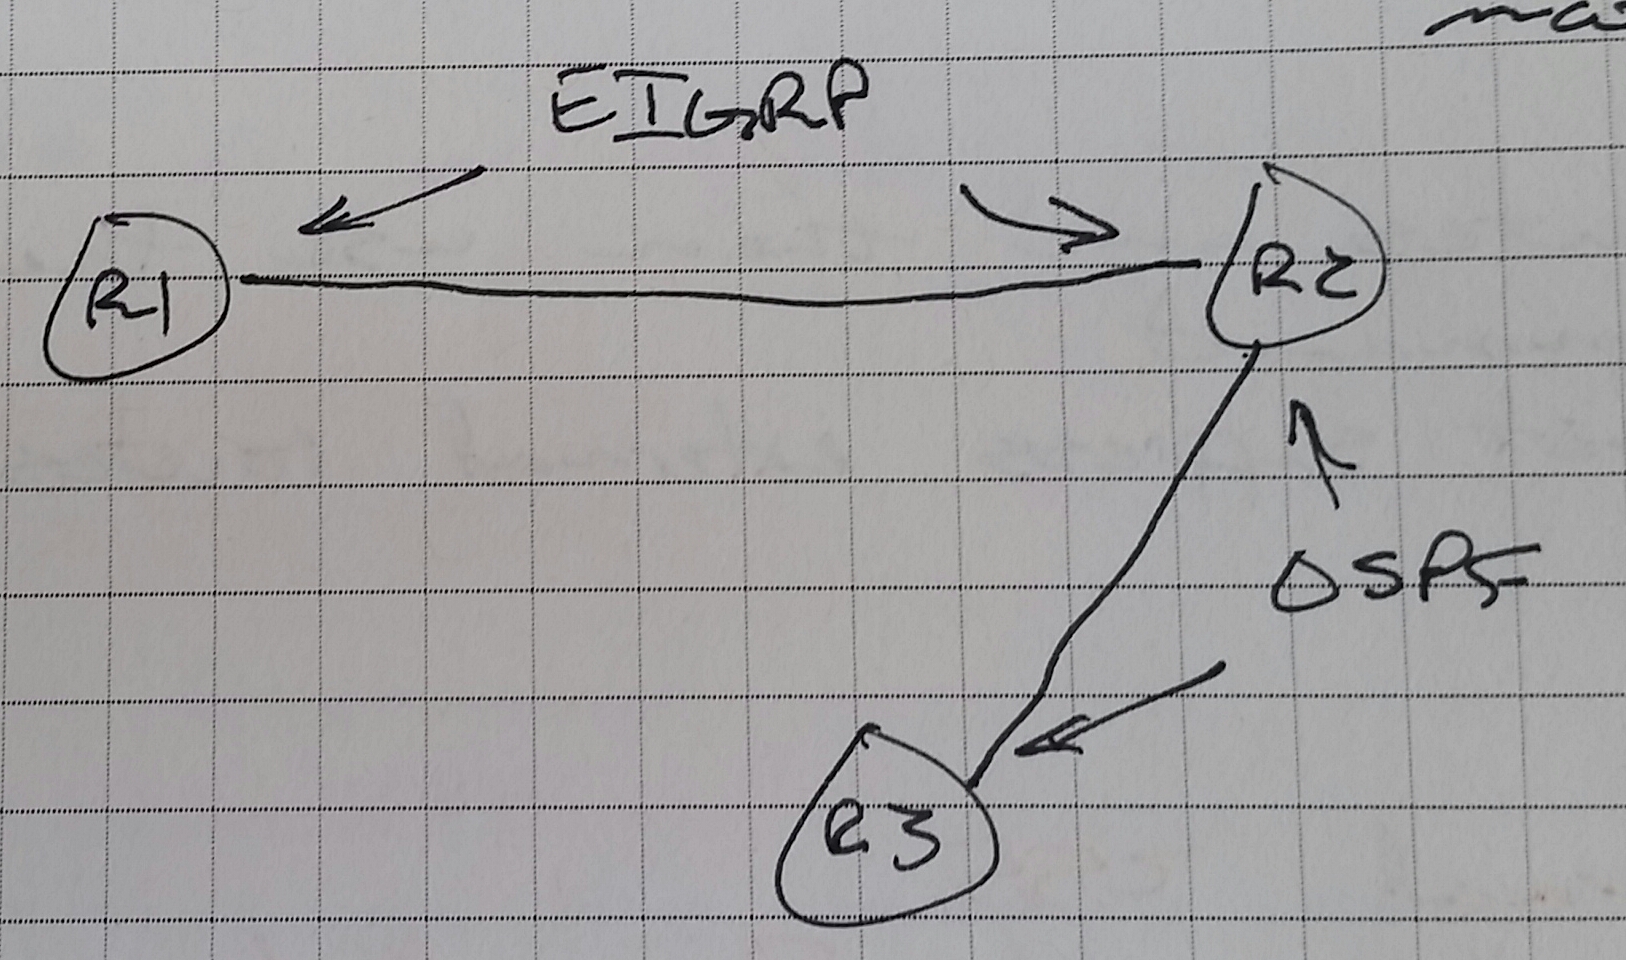 EIGRP
R1
R2
OSPF
R3